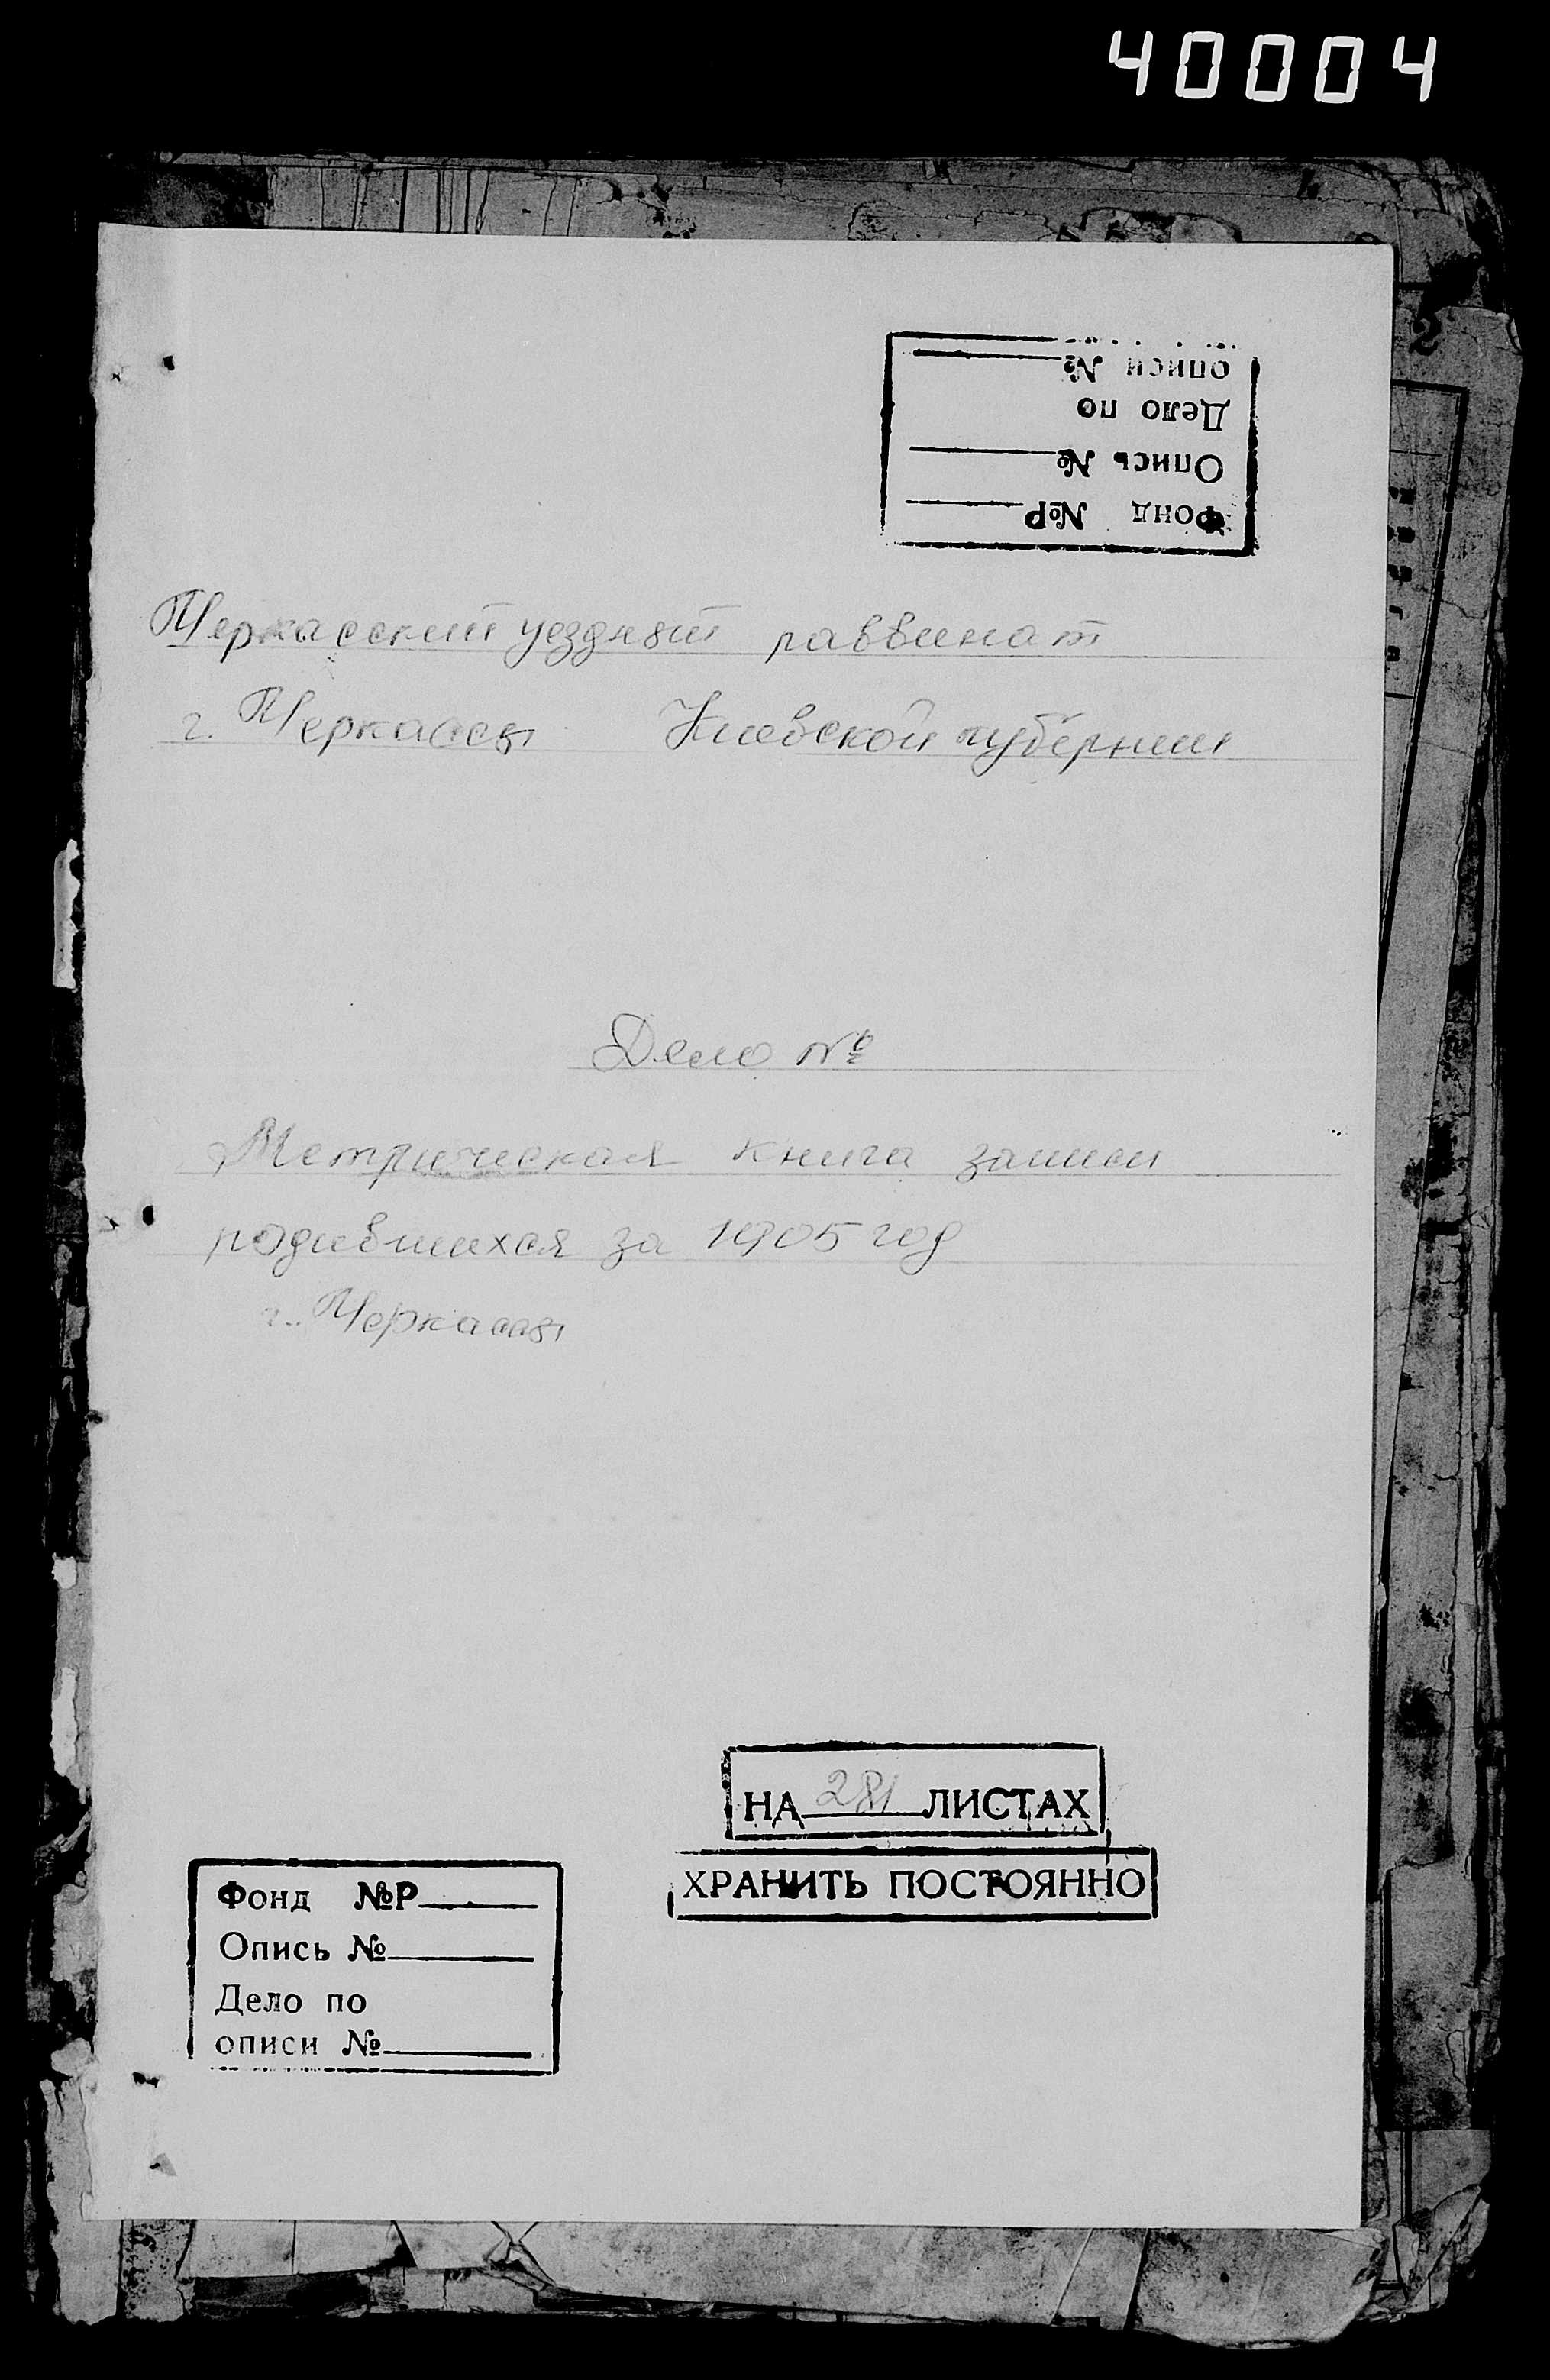 40004
Фонд №Р
Опись №
Дело по
описи №
Черкасский уездный раввинат
г. Черкассы Киевской губернии
Дело №
Метрическая книга записи
родившихся за 1905 год
г. Черкассы
НА 281 ЛИСТАХ
ХРАНИТЬ ПОСТОЯННО
Фонд №Р
Опись №
Дело по
описи №